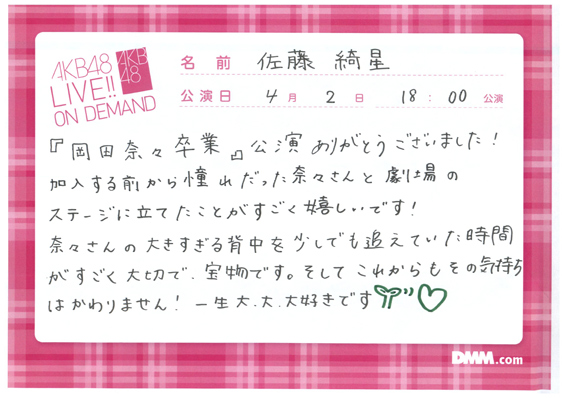 AKB48
LIVE!!
ON DEMAND
AKB
48
名前 佐藤 綺星
公演日 4月 2日 18:00 公演
『岡田奈々卒業』公演 ありがとうございました!
加入する前から憧れだった奈々さんと劇場の
ステージに立てたことがすごく嬉しいです!
奈々さんの大きすぎる背中を少しでも追えていた時間
がすごく大切で、宝物です。そしてこれからもその気持ち
はかわりません! 一生大、大、大好きです
DMM.com